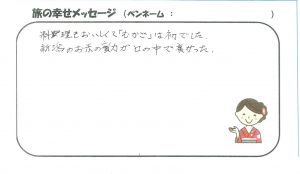 旅の幸せメッセージ (ペンネーム： )
料理もおいしくて「むかご」は初でした。
新潟のお米の魔力が口の中で広かった。